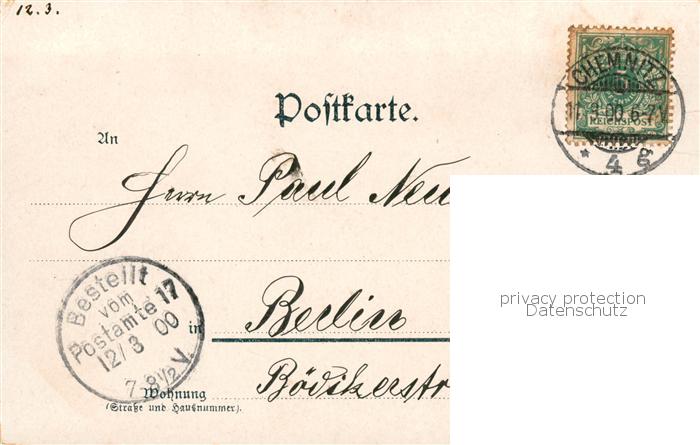 12.3.
CHEMNITZ
REICHSPOST
* 4 g
Postkarte.
An
Herrn Paul Neu
privacy protection
Datenschutz
Bestellt
vom
Postamte 17
12/3 00
7-8½ V.
in Berlin
Wohnung Bödikerstr
(Straße und Hausnummer).